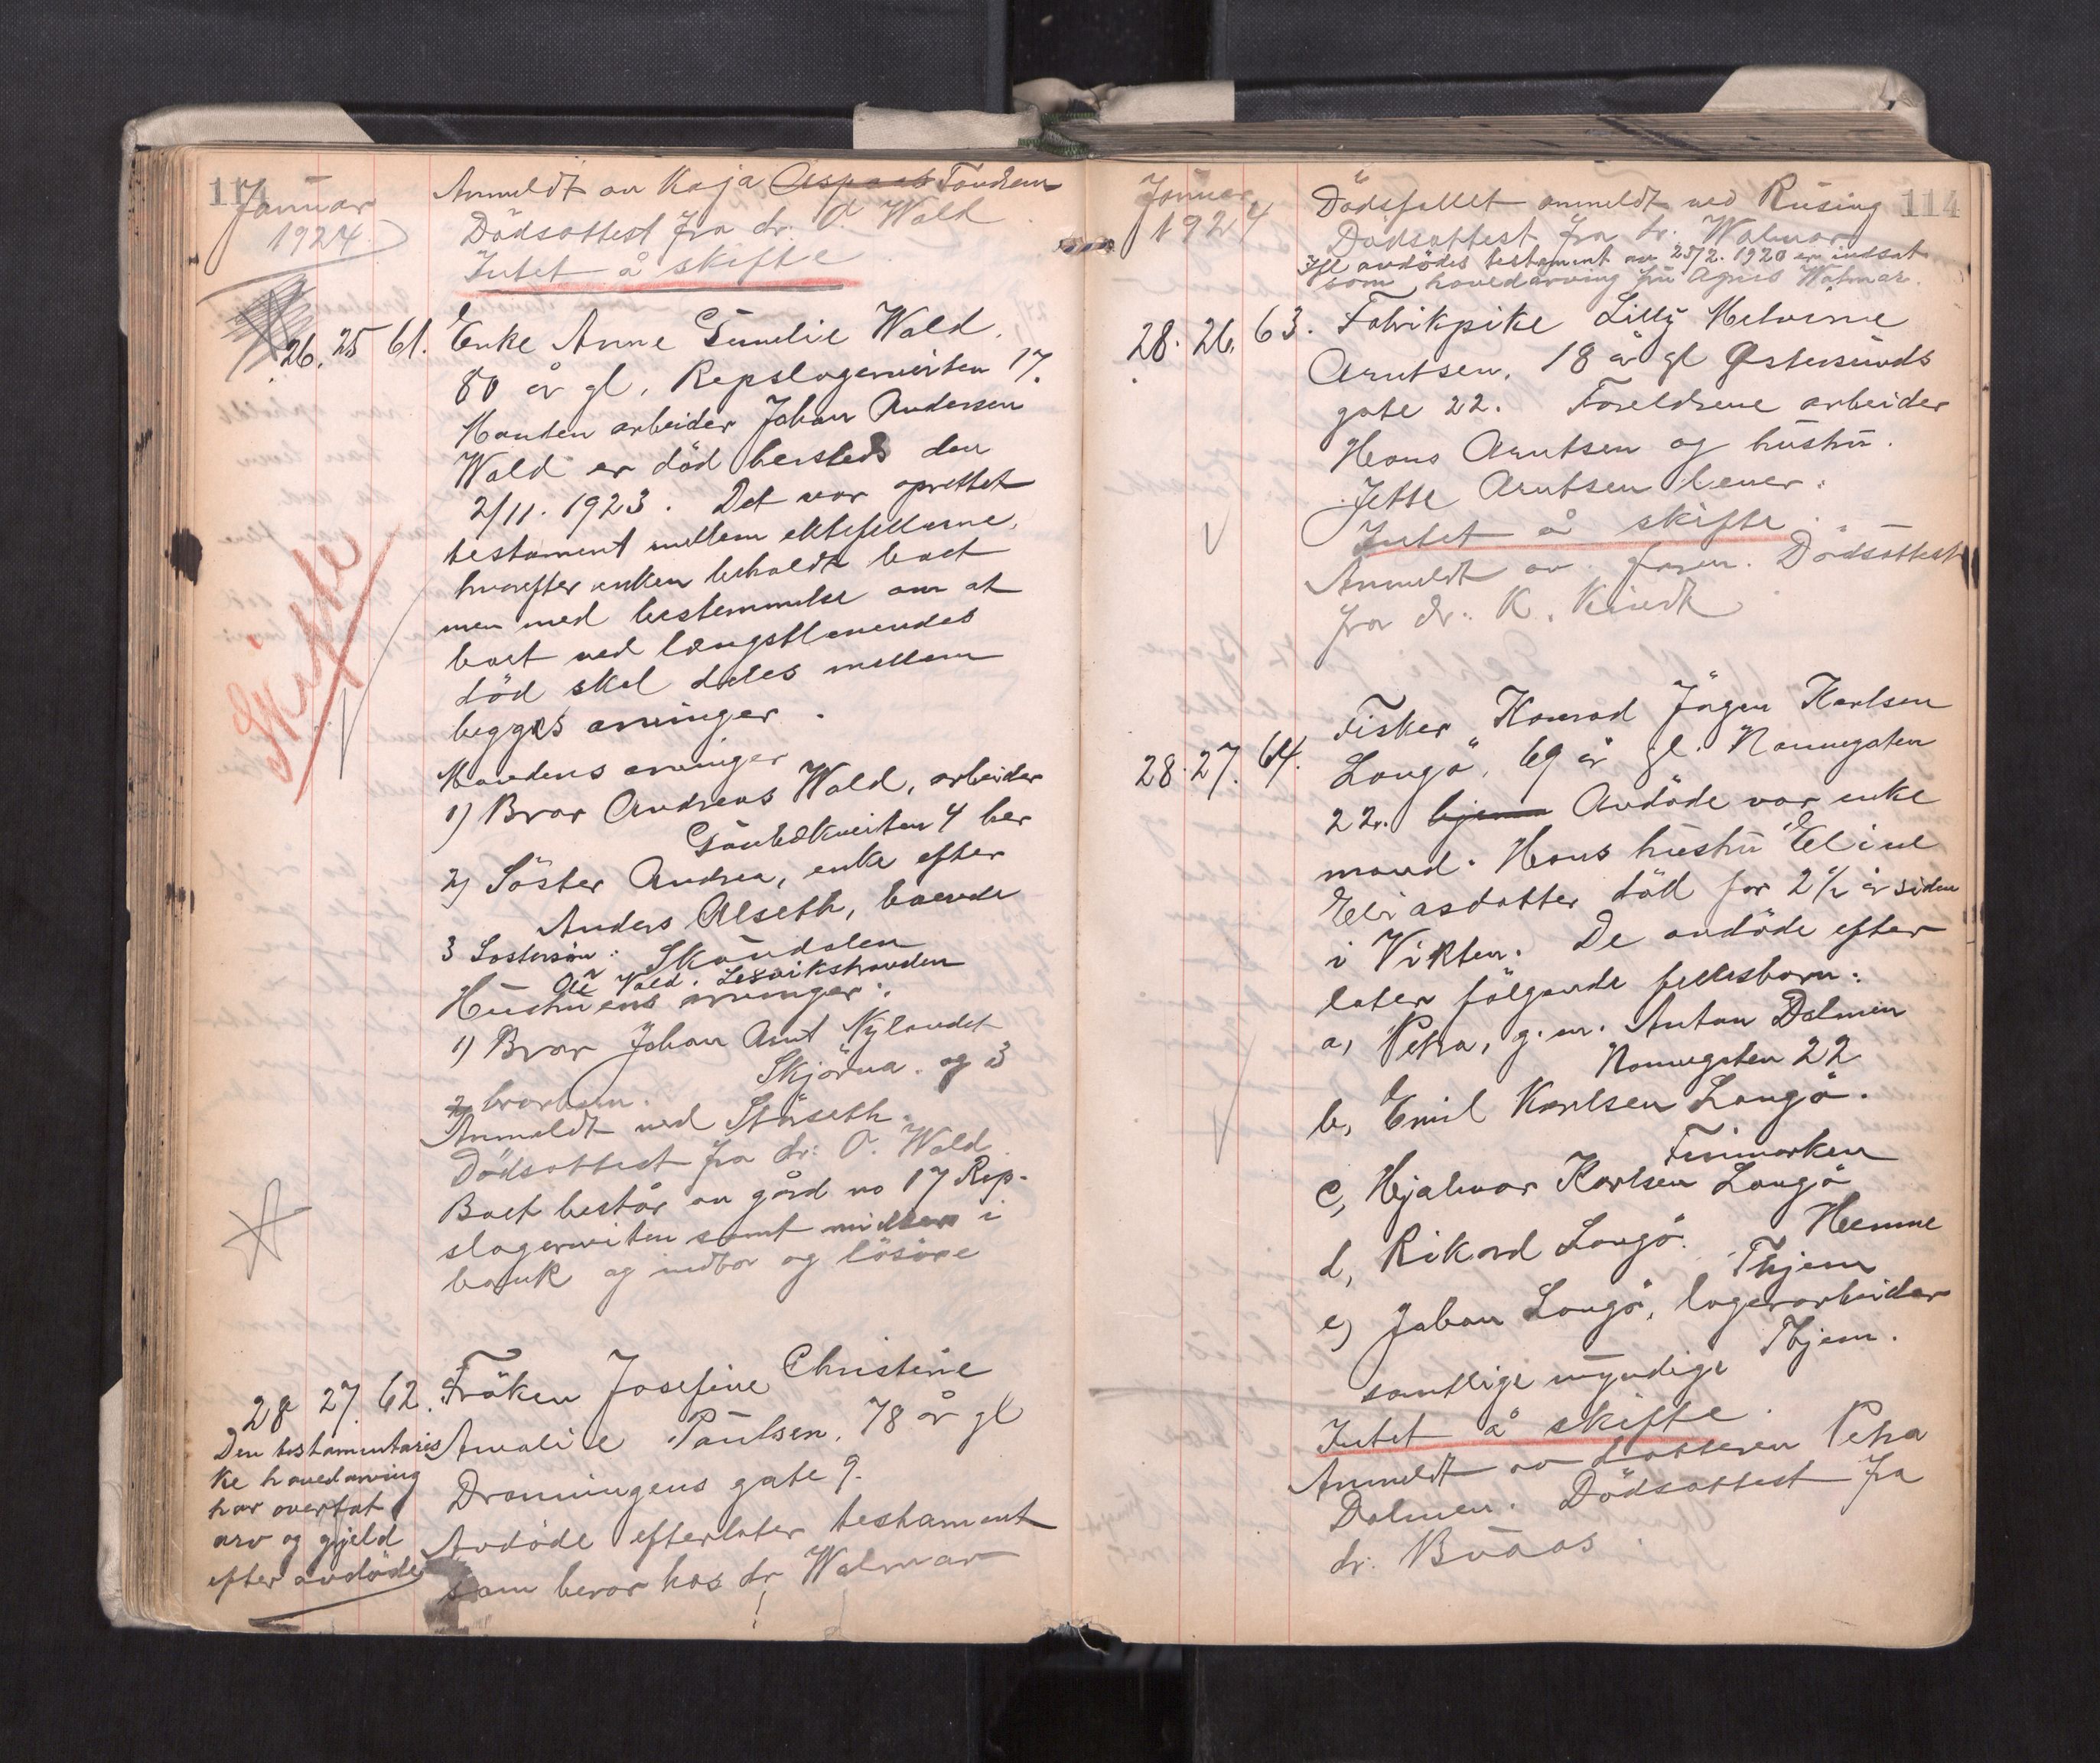 114
Januar
1924.
Anmeldt av Kaja Aspaas Tondsen
Dödsattest fra dr. O. Wald
Intet å skifte
26. 25 61. Enke Anne Emelie Wald,
80 år gl. Repslagerveiten 17.
Manden arbeider Johan Andersen
Wald er död hersteds den
2/11. 1923. Det var oprettet
testament mellem ektefellerne,
hvorefter enken beholdt boet
men med bestemmelse om at
boet ved længstlevendes
död skal deles mellem
begges arvinger.
Skifte
Mandens arvinger
1) Bror Andreas Wald, arbeider
Gaubækveiten 4 her
2) Söster Andrea, enke efter
Anders Alseth, boende
3 Sostersön: Skaudalen
Ole Vold. Lexvikstranden
Hustruens arvinger:
1) Bror Johan Arnt Nylandet
Skjörna. og 3
2) brorbarn.
Anmeldt ved Störseth.
Dödsattest fra dr: O. Wald
Boet består av gård no 17 Rep-
slagerveiten samt midler i
bank og indbo og lösöre
28 27. 62. Fröken Josefine Christine
Amalie Paulsen, 78 år gl
Dronningens gate 9.
Avdöde efterlater testament
som beror hos dr Walmar
Den testamentaris
ke hovedarving
har overtat
arv og gjeld
efter avdöde
Januar
1924
114
Dödsfallet anmeldt ved Rusing
Dödsattest fra dr. Walmar
Ifl avdödes testament av 25/2. 1920 er indsat
som hovedarving fru Agnes Walmar.
28. 26. 63. Fabrikpike Lilly Helvine
Arntsen, 18 år gl Østersunds
gate 22. Foreldrene arbeider
Hans Arntsen og hustru
Jette Arntsen lever.
Intet å skifte.
Anmeldt av faren. Dödsattest
fra dr. K. Kindt
28. 27. 64. Fisker Konrad Jörgen Karlsen
Langö, 69 år gl. Nonnegaten
22. hjemm Avdöde var enke
mand. Hans hustru Eline
Eliasdatter död for 2 1/2 år siden
i Vikten. De avdöde efter
later fölgende fellesbarn:
a, Petra, g. m. Anton Dalmen
Nonnegaten 22
b, Emil Karlsen Langö.
Finmarken
c, Hjalmar Karlsen Langö
Hemne
d, Rikard Langö. Thjem
e) Johan Langö, lagerarbeider
Thjem.
samtlige myndige
Intet å skifte.
Anmeldt av datteren Petra
Dalmen. Dödsattest fra
dr. Buaas.